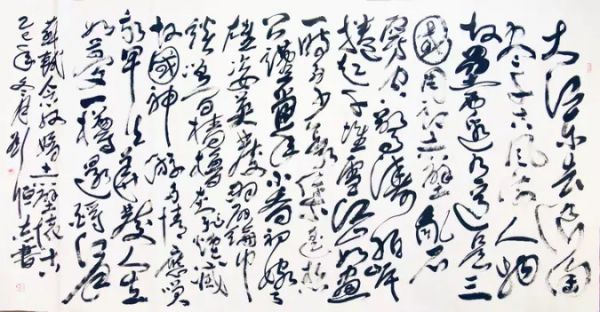 大江东去浪淘
尽千古风流人物
故垒西边人道是三
國周郎赤壁乱石
穿空惊涛拍岸
捲起千堆雪江山如画
一時多少豪杰遥想
公瑾当年小乔初嫁了
雄姿英发羽扇纶巾
谈笑间樯橹灰飞烟灭
故國神游多情應笑
我早生华发人生
如梦一樽還酹江月
苏轼念奴娇赤壁懷古
乙巳年冬月